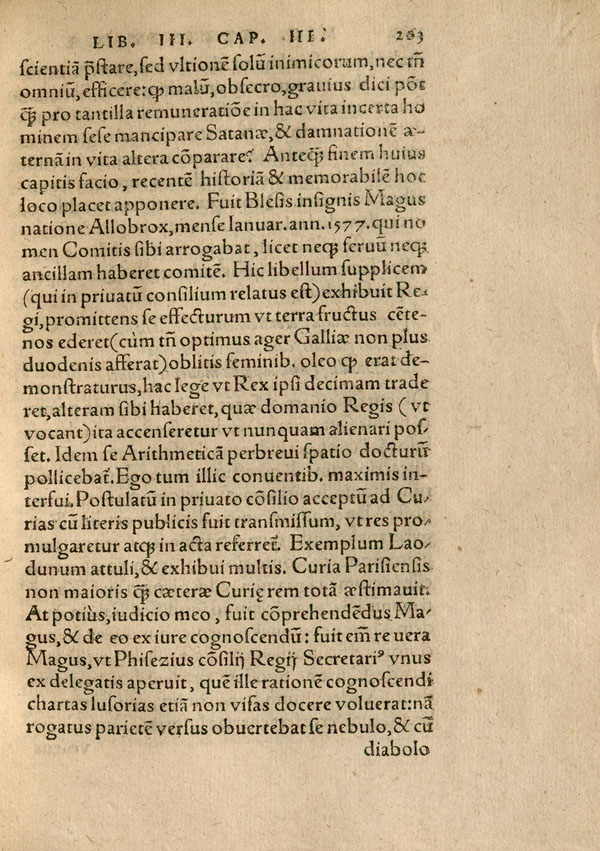 LIB. III. CAP. III. 263
ſcientiã p̃ſtare, ſed vltionẽ ſolũ inimicorum, nec tñ
omniũ, efficere: ꝙ malũ, obſecro, grauius dici põt
q̃ꝫ pro tantilla remuneratiõe in hac vita incerta ho
minem ſeſe mancipare Satanæ, & damnationẽ æ-
ternã in vita altera cõparare? Anteq̃ꝫ finem huius
capitis facio, recentẽ hiſtoriã & memorabilẽ hoc
loco placet apponere. Fuit Bleſis inſignis Magus
natione Allobrox, menſe Ianuar. ann. 1577. qui no
men Comitis ſibi arrogabat, licet neqꝫ ſeruũ neqꝫ
ancillam haberet comitẽ. Hic libellum ſupplicem
(qui in priuatũ conſilium relatus eſt) exhibuit Re-
gi, promittens ſe effecturum vt terra fructus cẽte-
nos ederet (cùm tñ optimus ager Galliæ non plus
duodenis afferat) oblitis ſeminib. oleo ꝙ erat de-
monſtraturus, hac lege vt Rex ipſi decimam trade
ret, alteram ſibi haberet, quæ domanio Regis (vt
vocant) ita accenſeretur vt nunquam alienari poſ-
ſet. Idem ſe Arithmeticã perbreui ſpatio docturũ
pollicebat᷑. Ego tum illic conuentib. maximis in-
terfui. Poſtulatũ in priuato cõſilio acceptũ ad Cu-
rias cũ literis publicis fuit tranſmiſſum, vt res pro-
mulgaretur atqꝫ in acta referret᷑. Exemplum Lao-
dunum attuli, & exhibui multis. Curia Pariſienſis
non maioris q̃ꝫ cæteræ Curię rem totã æſtimauit.
At potiùs, iudicio meo, fuit cõprehendẽdus Ma-
gus, & de eo ex iure cognoſcendũ: fuit em̃ re uera
Magus, vt Phiſezius cõſilij Regij Secretariꝰ vnus
ex delegatis aperuit, quẽ ille rationẽ cognoſcendi
chartas luſorias etiã non viſas docere voluerat: nã
rogatus parietẽ verſus obuertebat ſe nebulo, & cũ
diabolo